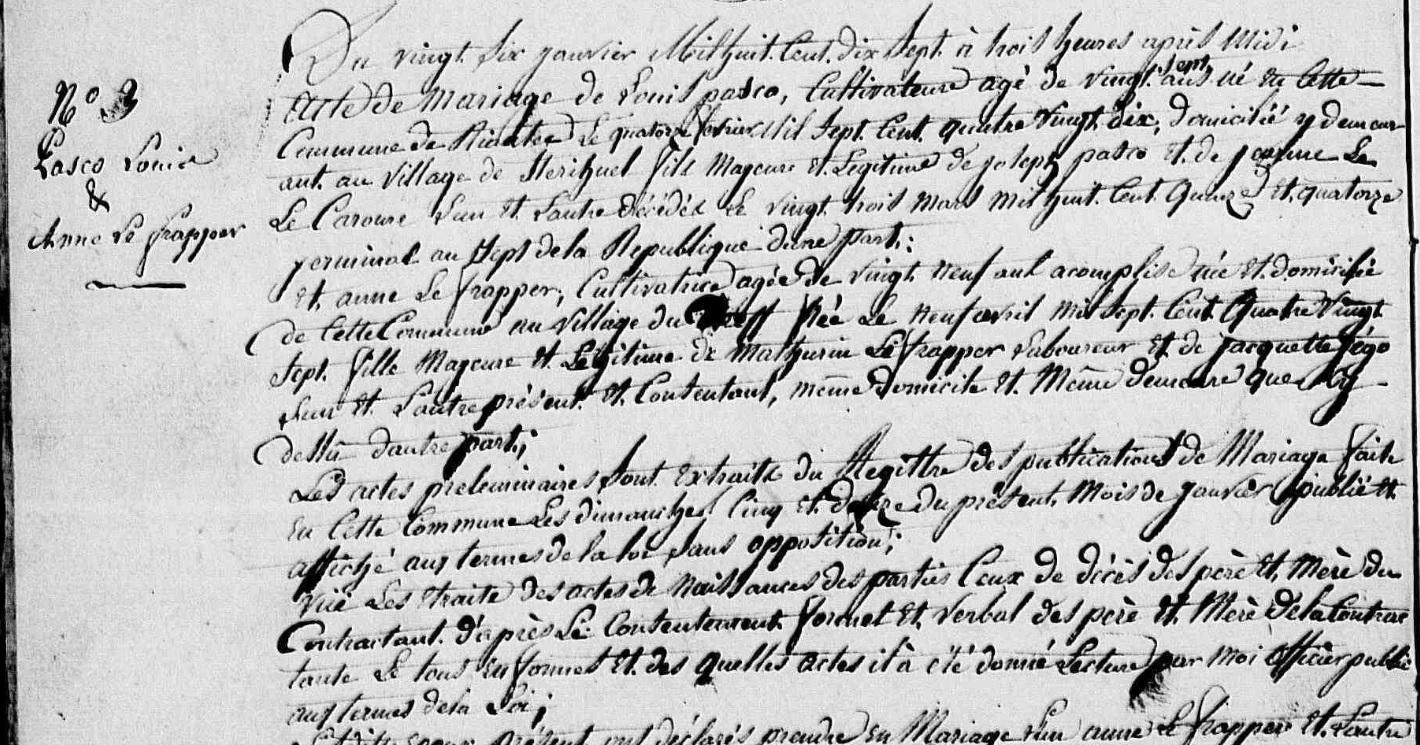 N° 3
Pasco Louis
&
Anne Le frapper
Du vingt Six janvier Mil huit Cent dix Sept à trois heures après Midi
acte de Mariage de Louis pasco, Cultivateure agé de vingt Sept ans né en Cette
Commune de le quatorze fevrier Mil Sept Cent quatre vingt dix, domicilié y demeur
ant au village de fils Majeure et Legitime de joseph pasco et de jeanne Le
Le Caroure L'un et L'autre décédés Le vingt trois Mars mil huit Cent Quinze et quatorze
germinal an Sept de la Republique d'une part;
et anne Le frapper, Cultivatrice agée de vingt neuf ans acomplise née et domicilié
de Cette Commune au village du Née Le neuf avril mil Sept Cent Quatre Vingt
Sept fille Majeure et Légitime de Mathurin Le frapper Laboureur et de jacquette
L'un et L'autre présent et Consentant, même domicile et Même demeure que Cy
dessu d'autre part;
Les actes preleminaires Sont extraits du Registre des publications de Mariage faite
en Cette Commune Les dimanches Cinq et douze du présent Mois de janvier publié et
affiché aux termes de la loi sans opposition;
vüe Les etraits des actes de Naissances des parties Ceux de décès des père et Mère du
Contractant d'après Le Consentement formel et verbal des père et Mère de la Contrac
tante Le tous en formes et des quelles actes il à été donné Lecture par moi officier public
aux termes de la Loi;
présent ont déclarés prendre en Mariage L'un anne Le frapper et L'autre